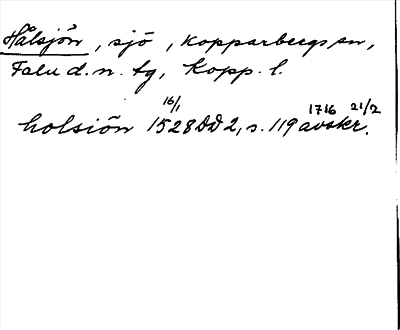 Hålsjön, sjö, Kopparbergs sn,
Falu d. n. tg, Kopp. l.
holsiön 16/1 1528 DD 2, s. 119 avskr. 1716 21/2